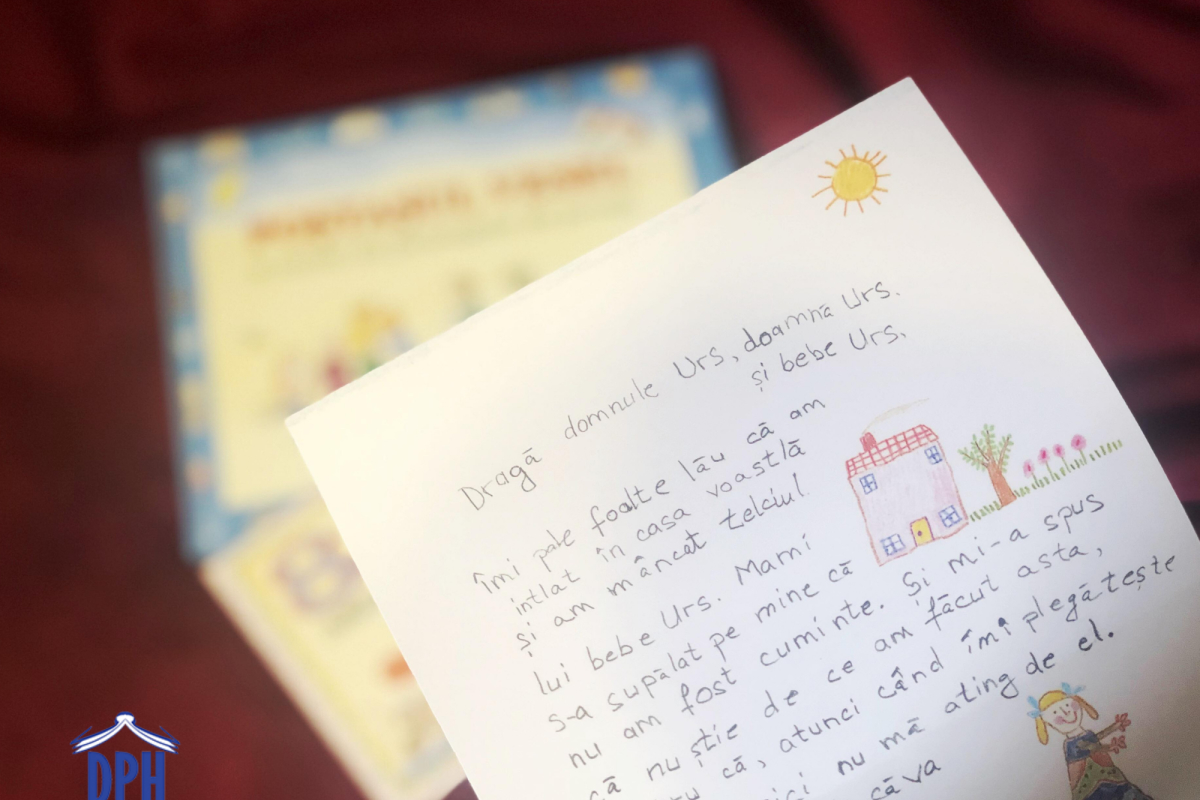 Dragă domnule Urs, doamnă Urs.
și bebe Urs.
îmi pale foalte lău că am
intlat în casa voastlă
și am mâncat telciul
lui bebe Urs. Mami
s-a supălat pe mine că
nu am fost cuminte. Și mi-a spus
că nu știe de ce am făcut asta,
că, atunci când îmi plegătește
nu mă ating de el.
căva
DPH